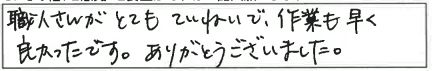 職人さんがとてもていねいで、作業も早く
良かったです。ありがとうございました。